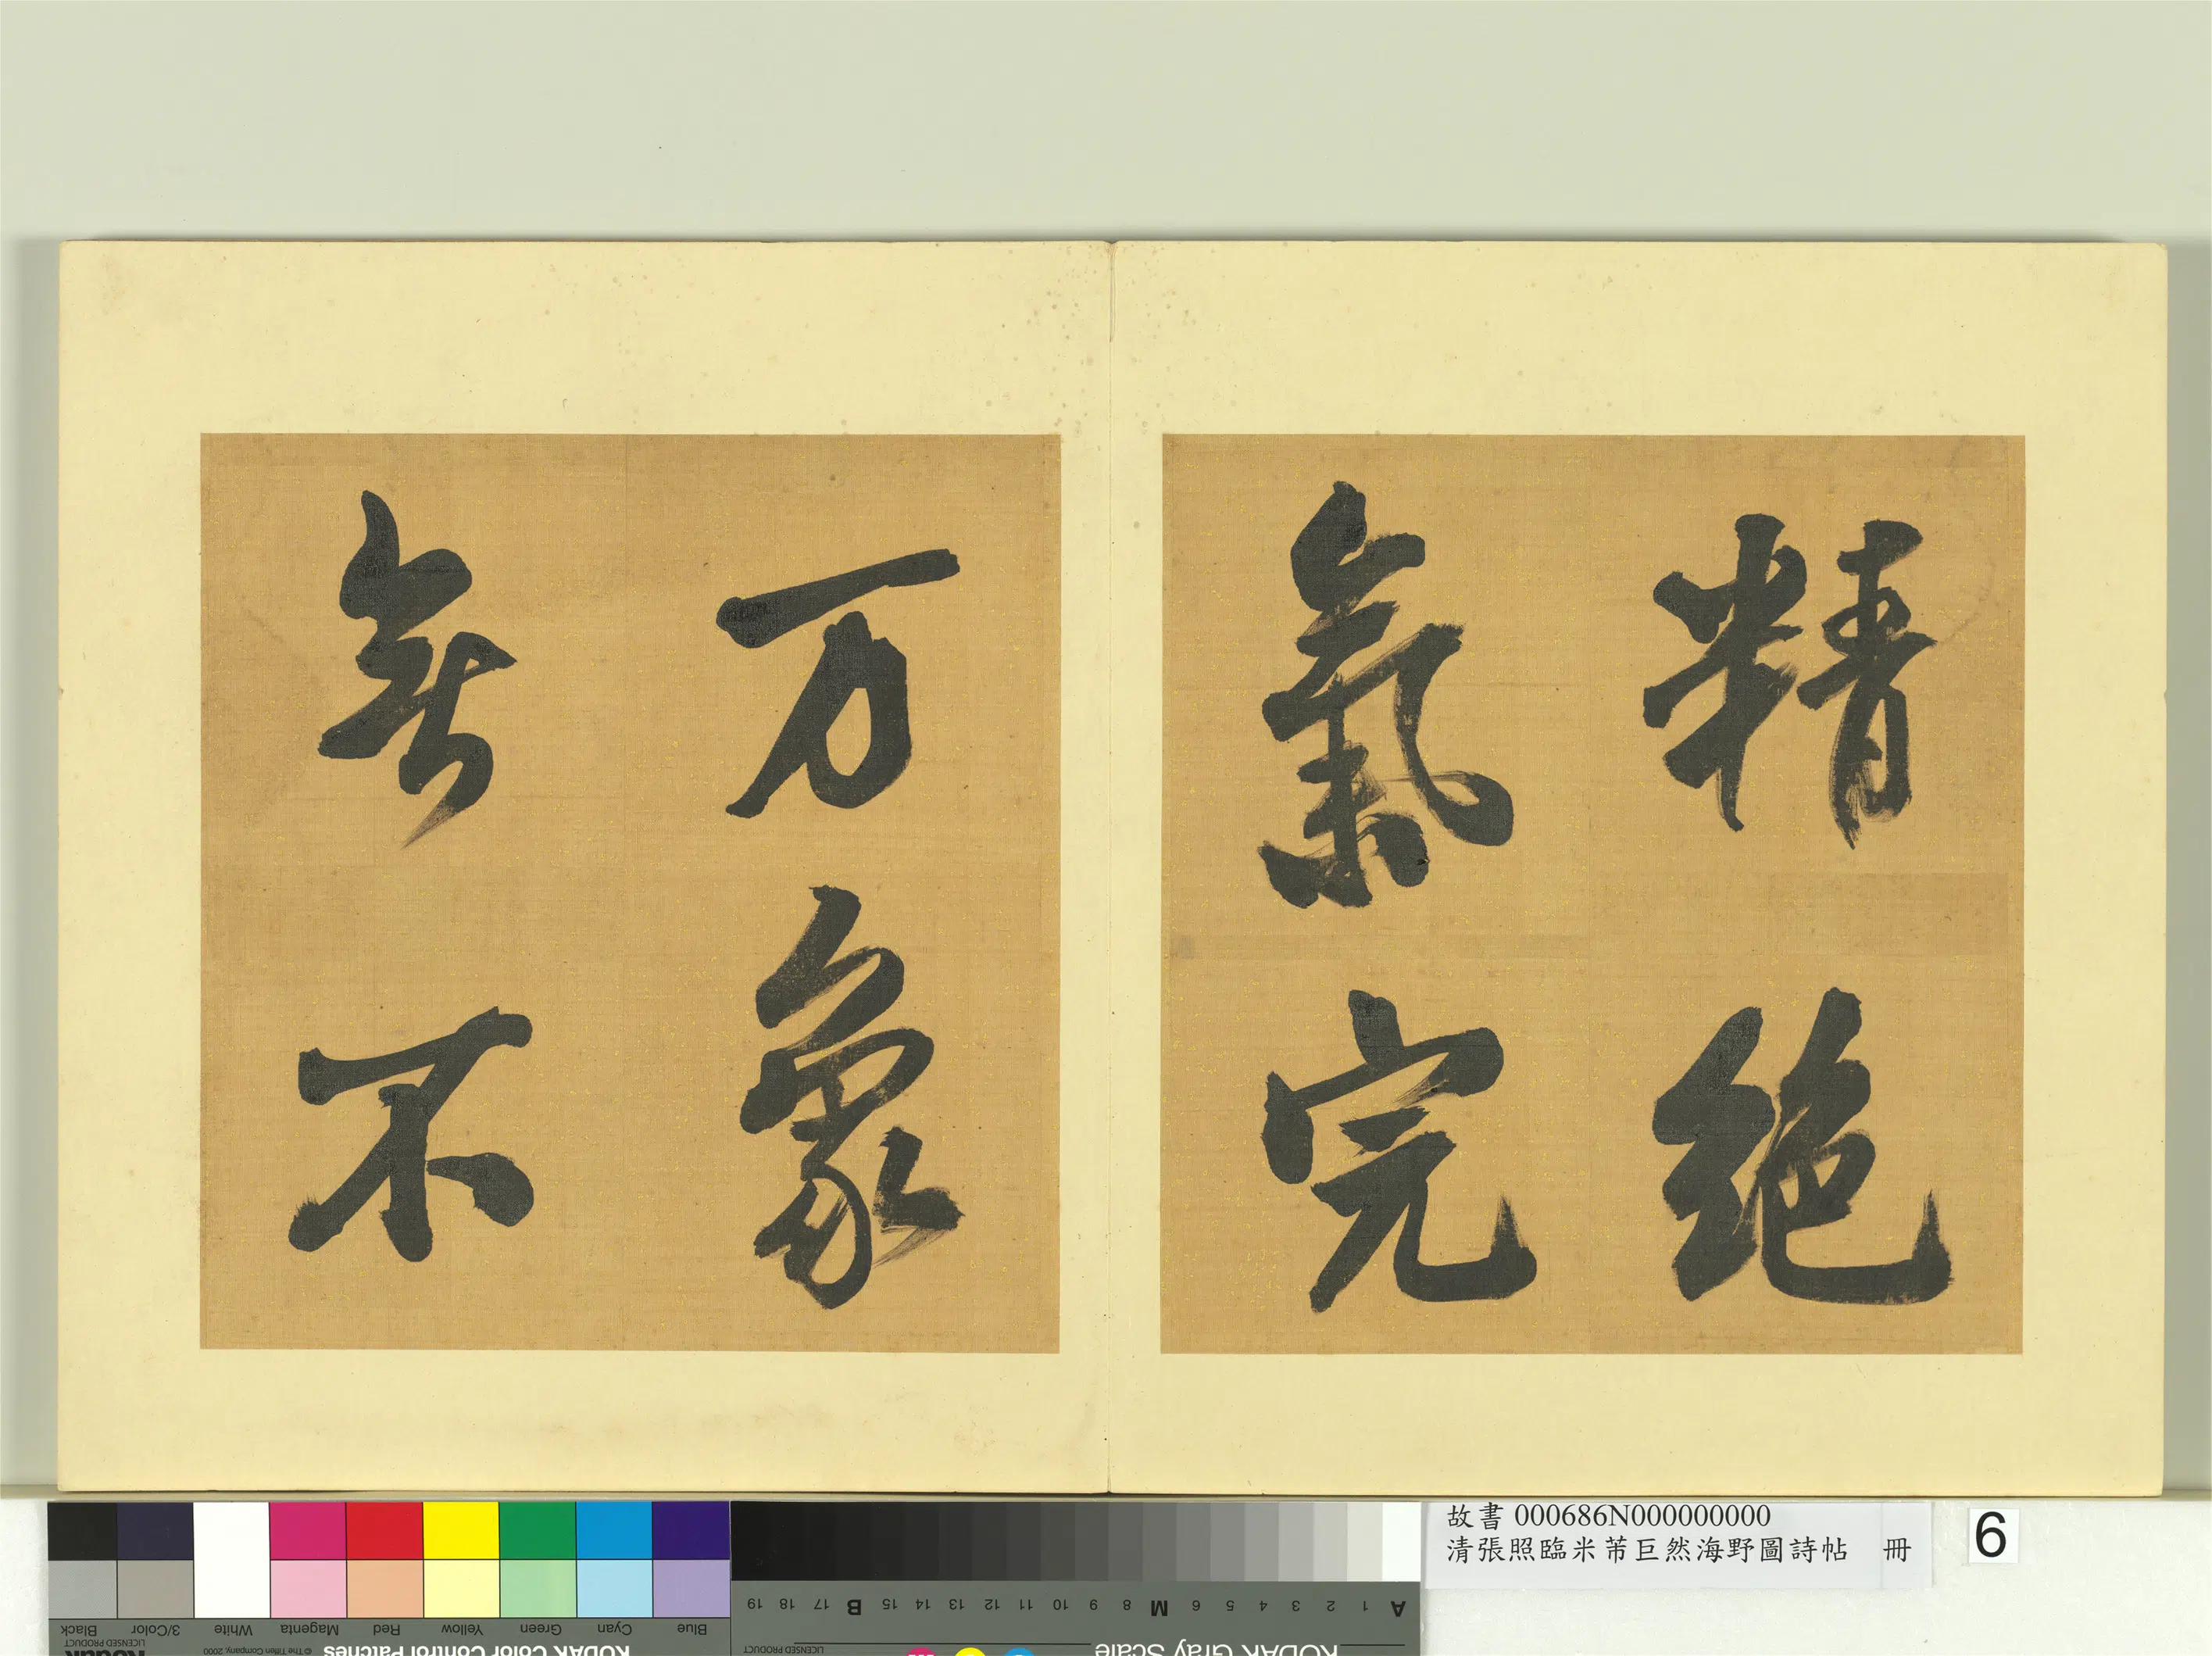 精絶
氣完
万象
無不
故書 000686N000000000
清張照臨米芾巨然海野圖詩帖 冊
6
KODAK Color Control Patches
© The Tiffen Company, 2000
Kodak
LICENSED PRODUCT
Blue Cyan Green Yellow Red Magenta White 3/Color Black
KODAK Gray Scale
LICENSED PRODUCT
A 1 2 3 4 5 6 M 8 9 10 11 12 13 14 15 B 17 18 19